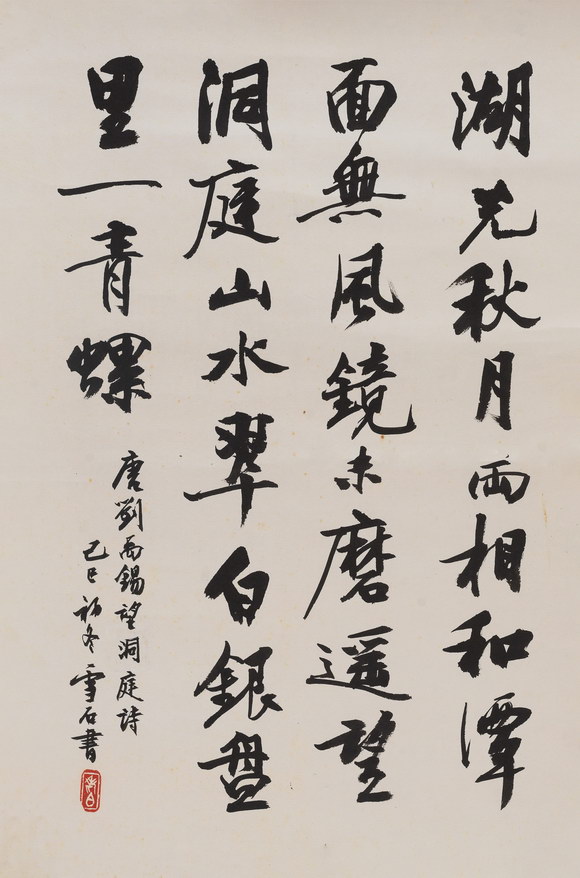 湖光秋月两相和潭
面無風鏡未磨遥望
洞庭山水翠白銀盘
里一青螺
唐劉禹錫望洞庭詩
己巳初冬雪石書